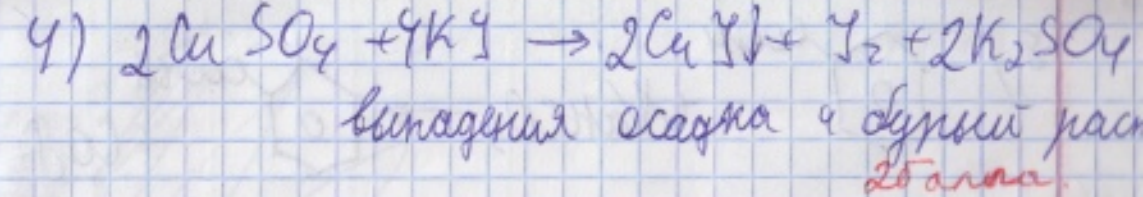 4) 2CuSO₄ + 4KJ → 2CuJ↓ + J₂ + 2K₂SO₄
выпадения осадка и бурый раст
2 балла.